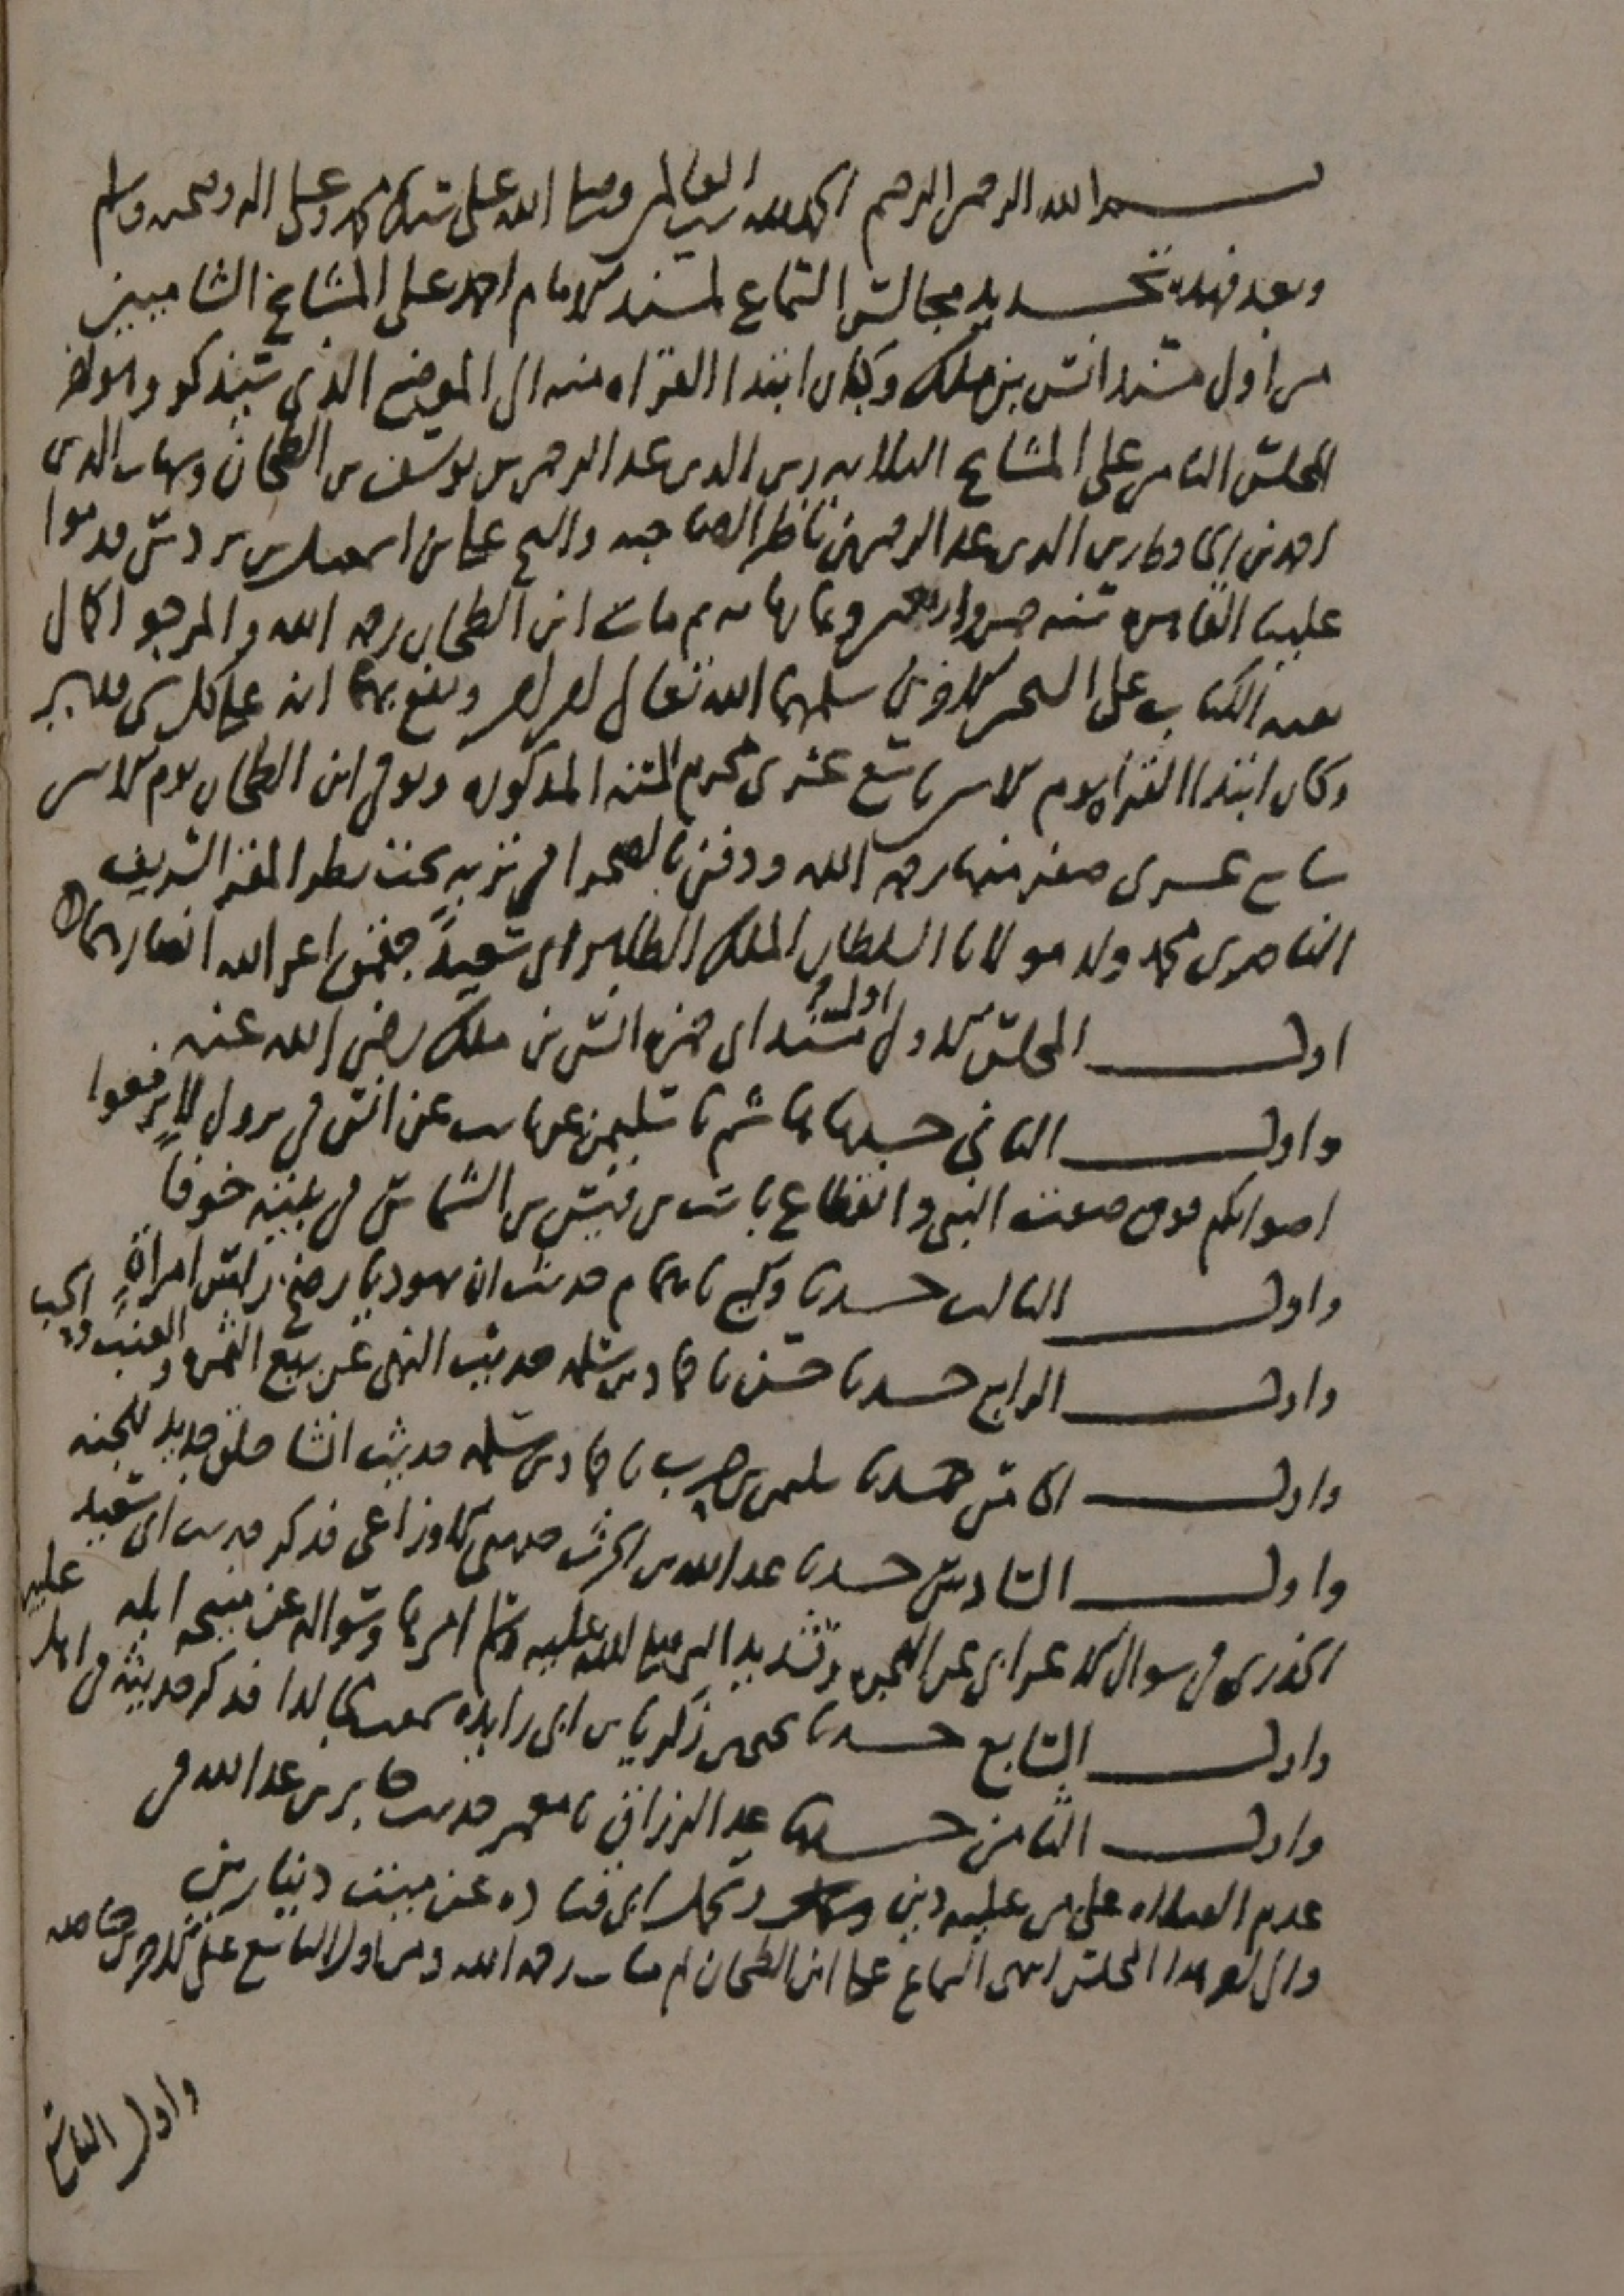 بسم الله الرحمن الرحيم الحمد لله رب العالمين وصلى الله على سيدنا محمد وعلى اله وصحبه وسلم
وبعد فهذه تحديد مجالس السماع لمسند الامام احمد على المشايخ الشاميين
من اول مسند انس بن ملك وكان ابتدا القراه منه الى الموضع الذي سيذكر وهو اخر
المجلس الثامن على المشايخ الثلاثه زين الدين عبد الرحمن بن يوسف بن الطحان وشهاب الدين
احمد بن عبد الرحمن بن ناظر الصاحبه والشيخ علي بن اسمعيل بن بردس قدموا
علينا القاهره سنه خمس واربعين وثمانمايه ثم مات ابن الطحان رحمه الله والمرجو اكمال
بقيه الكتاب على الشيخين الاخرين سلمهما الله تعالى ونفع بهما انه على كل شي قدير
وكان ابتدا القراه يوم الاثنين تاسع عشري محرم السنه المذكوره وتوفي ابن الطحان يوم الاثنين
سابع عشري صفر منها رحمه الله ودفن بالصحرا في تربه تحت نظر المقر الشريف
الناصري محمد ولد مولانا السلطان الملك الظاهر ابي سعيد جقمق اعز الله انصارهما
اول المجلس الاول اول مسند ابي حمزه انس بن ملك رضي الله عنه
واول الثاني حدثنا هاشم نا سليمن عن ثابت عن انس في نزول لا ترفعوا
اصواتكم فوق صوت النبي وانقطاع ثابت بن قيس بن الشماس في بيته خوفا
واول الثالث حدثنا وكيع نا همام حديث ان يهوديا رضخ راس امراة
واول الرابع حدثنا حسن نا حماد بن سلمه حديث النهي عن بيع الثمره والعنب والحب
واول الخامس حدثنا سليمن بن حرب نا حماد بن سلمه حديث انشا خلق جديد للجنه
واول السادس حدثنا عبد الله بن الحرث حدثني الاوزاعي فذكر حديث ابي سعيد
الخدري في سوال الاعرابي عن الهجره وتشديد النبي صلى الله عليه وسلم امرها وسواله عن منيحه ابله
واول السابع حدثنا يحيى بن زكريا بن ابي زايده سمعت مجالدا فذكر حديثه في
واول الثامن حدثنا عبد الرزاق نا معمر حديث جابر بن عبد الله في
عدم الصلاه على من عليه دين وتحمل ابي قتاده عن ميت دينارين
والى اخر هذا المجلس انتهى السماع على ابن الطحان ثم مات رحمه الله ومن اول التاسع على الاخرين خاصه
واول التاسع